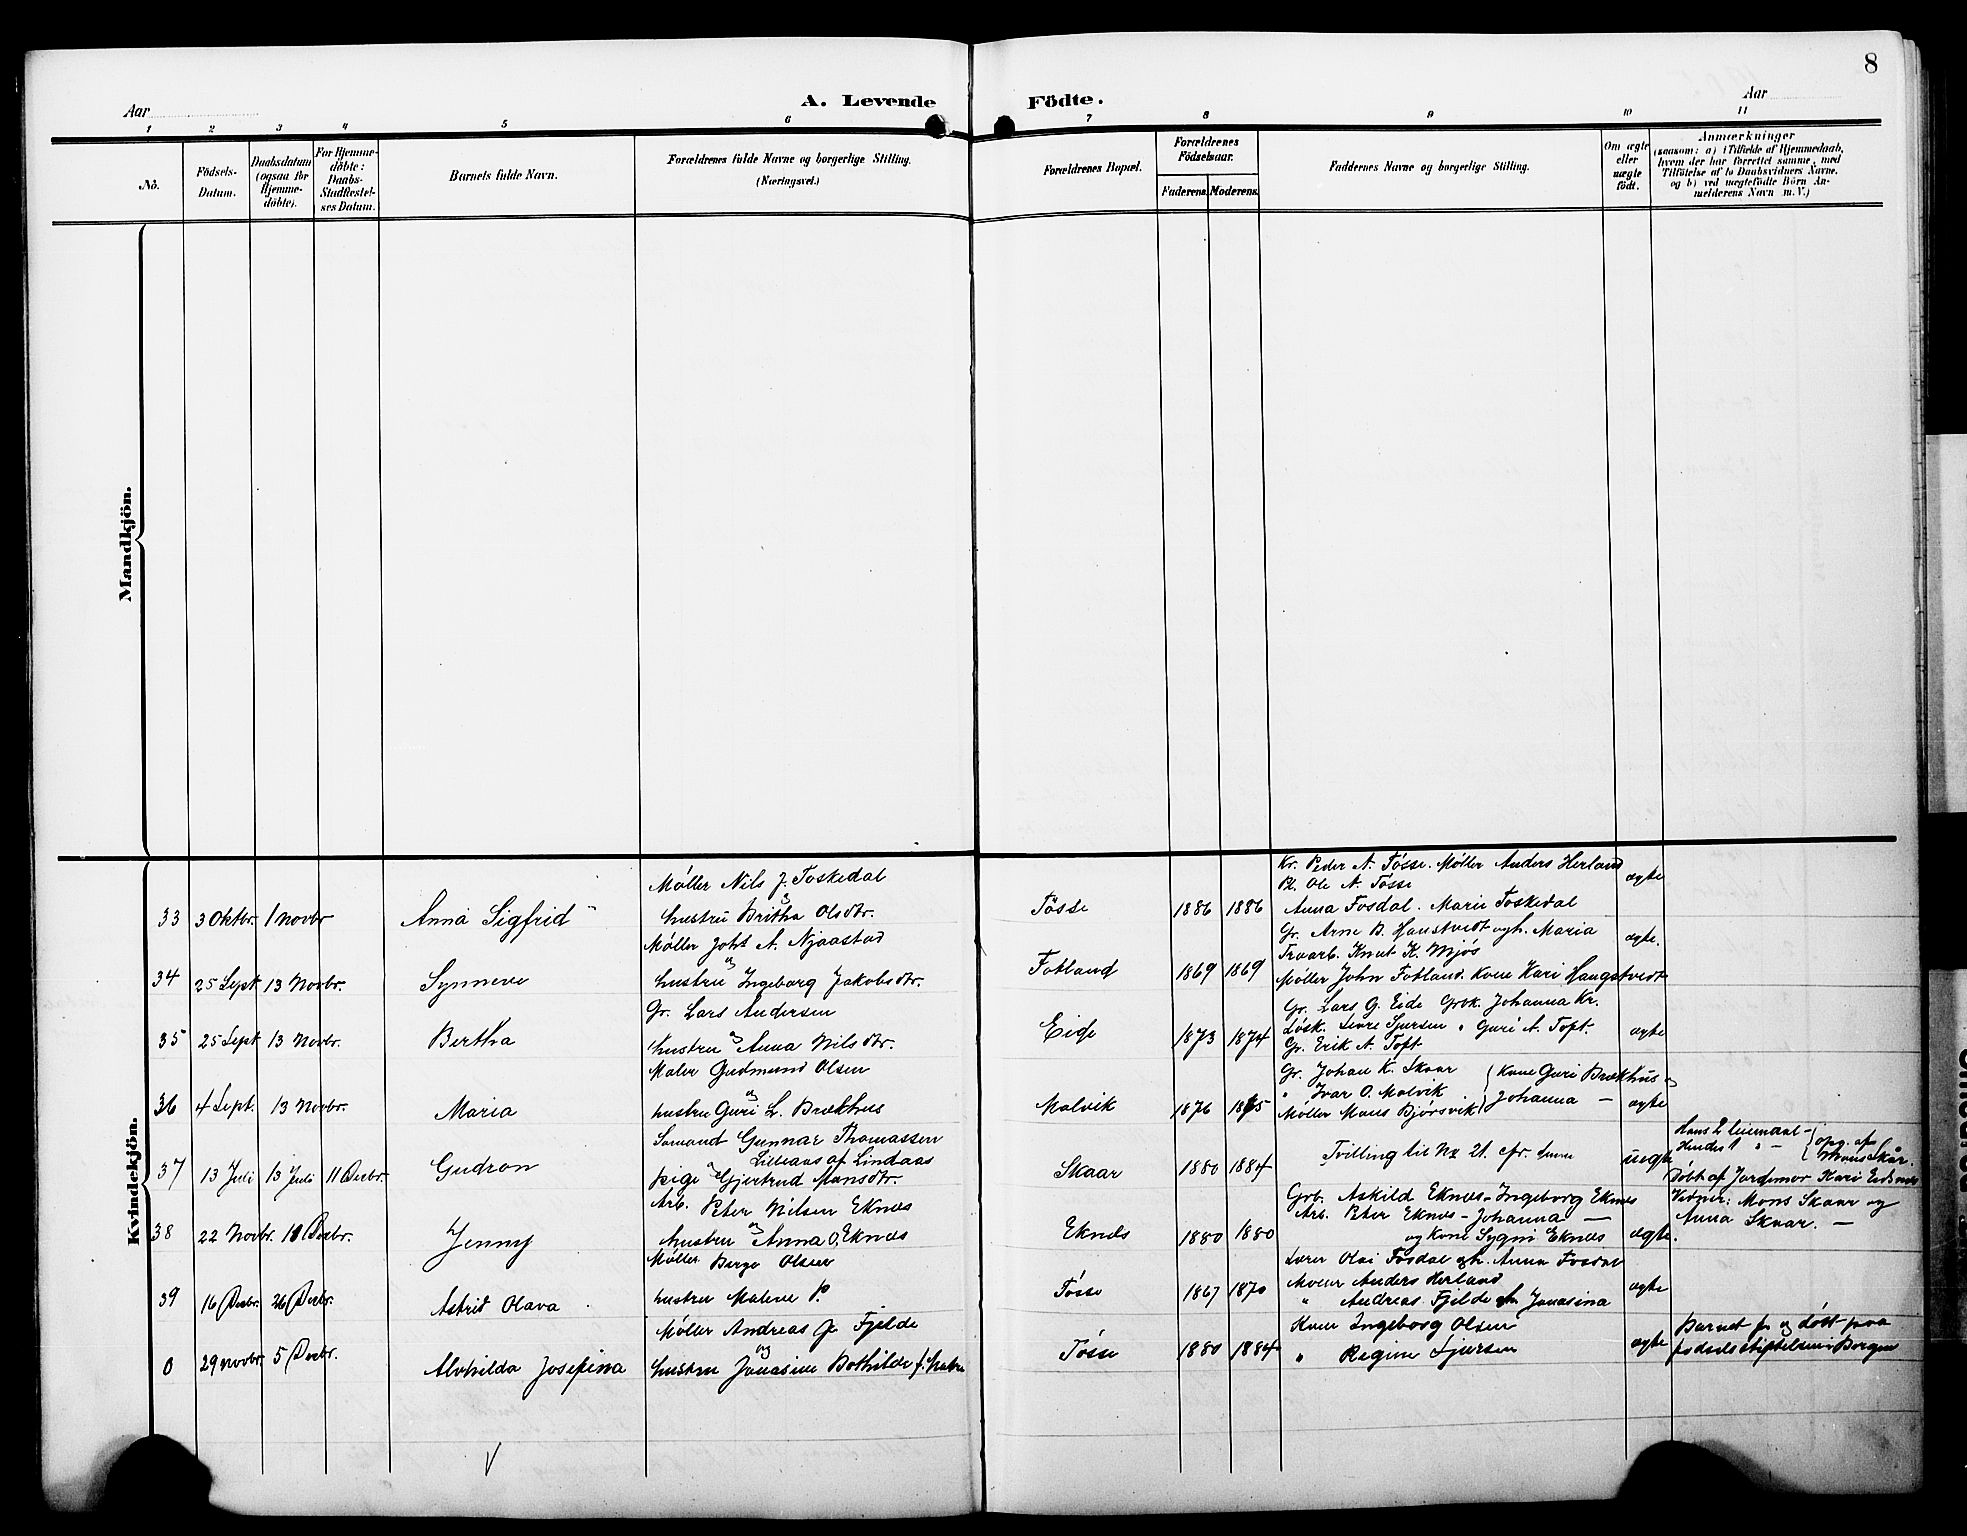 8
Aar
A. Levende
Födte.
Aar
1 2 3 4 5 6 7 8 9 10 11
No.
Födsels-
Datum.
Daabsdatum
(ogsaa for
Hjemme-
döbte).
For Hjemme-
döbte:
Daabs-
Stadfestel-
ses Datum.
Barnets fulde Navn.
Forældrenes fulde Navne og borgerlige Stilling.
(Næringsvei.)
Forældrenes Bopæl.
Forældrenes
Födselsaar.
Faderens. Moderens.
Faddernes Navne og borgerlige Stilling.
Om ægte
eller
uægte
födt.
Anmærkninger
(saasom: a) i Tilfælde af Hjemmedaab,
hvem der har forrettet samme, med
Tilföielse af to Daabsvidners Navne.
og b) ved uægtefödte Börn An-
melderens Navn m. V.)
Mandkjön.
Kvindekjön.
33 3 Oktbr. 1 Novbr Anna Sigfrid
Møller Nils J. Toskedal
og
hustru Britha Olsdtr.
Tösse 1886 1886
Kr. Peder A. Tösse. Møller Anders Herland
Pl. Ole A. Tösse
Anna Fosdal. Marie Toskedal
ægte
34 25 Sept 13 Novbr. Synneve
Møller Johs A. Njaastad
og
hustru Ingeborg Jakobsdtr.
Fotland 1869 1869
Gr. Arne B. Haustveidt ogh. Maria
Fraarb. Knut K. Mjös
Møller John Fotland. Kone Kari Haugstvedt
ægte.
35 25 Sept 13 Novbr. Bertha
Gr. Lars Andersen
og
hustru Anna Nilsdtr.
Eide 1873 1874
Gr. Lars G. Eide Grbk. Johanna Kr.
Løsk. Sjursen " Guri A. Toft.
Gr. Erik A. Toft
ægte
36 4 Sept. 13 Novbr. Maria
Maler Gudmund Olsen
og
hustru Guri L. Brækhus
Malvik 1876 1875
Gr. Johan K. Skaar Kone Guri Brækhus
" Ivar O. Malvik Johanna —
Møller Mons Bjørsvik
ægte
37 13 Juli 13 Juli 11 Decbr. Gudron
Sømand Gunnar Thomassen
Lilleaas af Lindaas
og
pige Gjertrud Monsdtr.
Skaar 1880 1884
Tvilling til No 21. cfr.
uægte
Hans 2 leiermaal
Hendes 1 " — opg. af Mons Skår.
Döbt af Jordemor Kari Eidsnes
Vidner: Mons Skaar og
Anna Skaar. —
38 22 Novbr. 11 Decbr. Jenny
Arb. Peter Nilsen Eknes
og
hustru Anna O. Eknes
Eknes 1880 1880
Grb. Askild Eknes - Ingeborg Eknes
Arb. Peter Eknes - Johanna —
og Kone Sygni Eknes
ægte.
39 16 Decbr. 26 Decbr. Astrid Olava
Møller Berge Olsen
hustru Malene P.
Tösse 1867 1870
Lærer Olai Fosdal oh. Anna Fosdal
Møller Anders Herland
" Andreas Fjelde oh Jonasina
ægte
0 29 Novbr. 5 Decbr. Alvhilda Josefina
Møller Andreas J. Fjelde
og
hustru Jonasine Bothilde f.
Tösse 1880 1884
Kone Ingeborg Olsen
" Regine Sjursen
ægte
Barnet f. og døbt paa
fødselsstiftelsen i Bergen